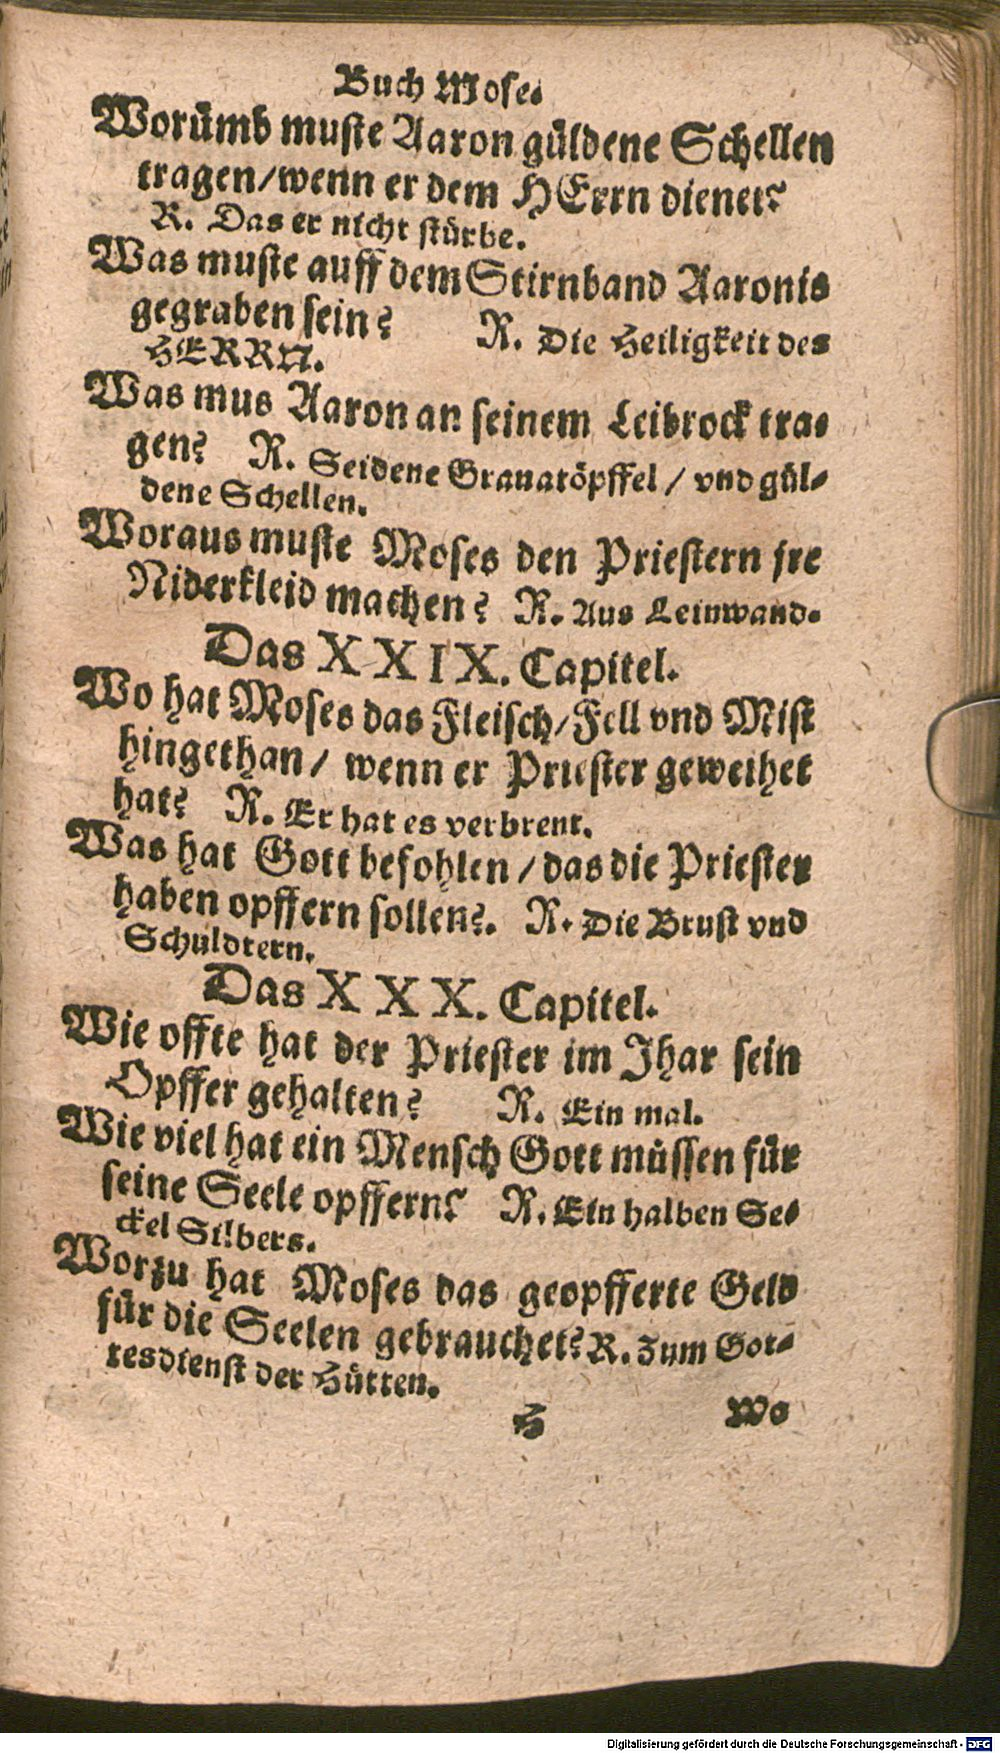 Buch Mose.
Worümb muste Aaron güldene Schellen
tragen/wenn er dem HErrn dienet?
R. Das er nicht stürbe.
Was muste auff dem Stirnband Aaronis
gegraben sein? R. Die Heiligkeit des
HERRN.
Was mus Aaron an seinem Leibrock tra-
gen? R. Seidene Granatöpffel / vnd gül-
dene Schellen.
Woraus muste Moses den Priestern jre
Niderkleid machen? R. Aus Leinwand.
Das XXIX. Capitel.
Wo hat Moses das Fleisch/Fell vnd Mist
hingethan / wenn er Priester geweihet
hat? R. Er hat es verbrent.
Was hat Gott befohlen / das die Priester
haben opffern sollen?. R. Die Brust vnd
Schuldtern.
Das XXX. Capitel.
Wie offte hat der Priester im Jhar sein
Opffer gehalten? R. Ein mal.
Wie viel hat ein Mensch Gott müssen für
seine Seele opffern? R. Ein halben Se-
ckel Silbers.
Worzu hat Moses das geopfferte Geld
für die Seelen gebrauchet? R. Zum Got-
tesdienst der Hütten.
H Wo
Digitalisierung gefördert durch die Deutsche Forschungsgemeinschaft - DFG